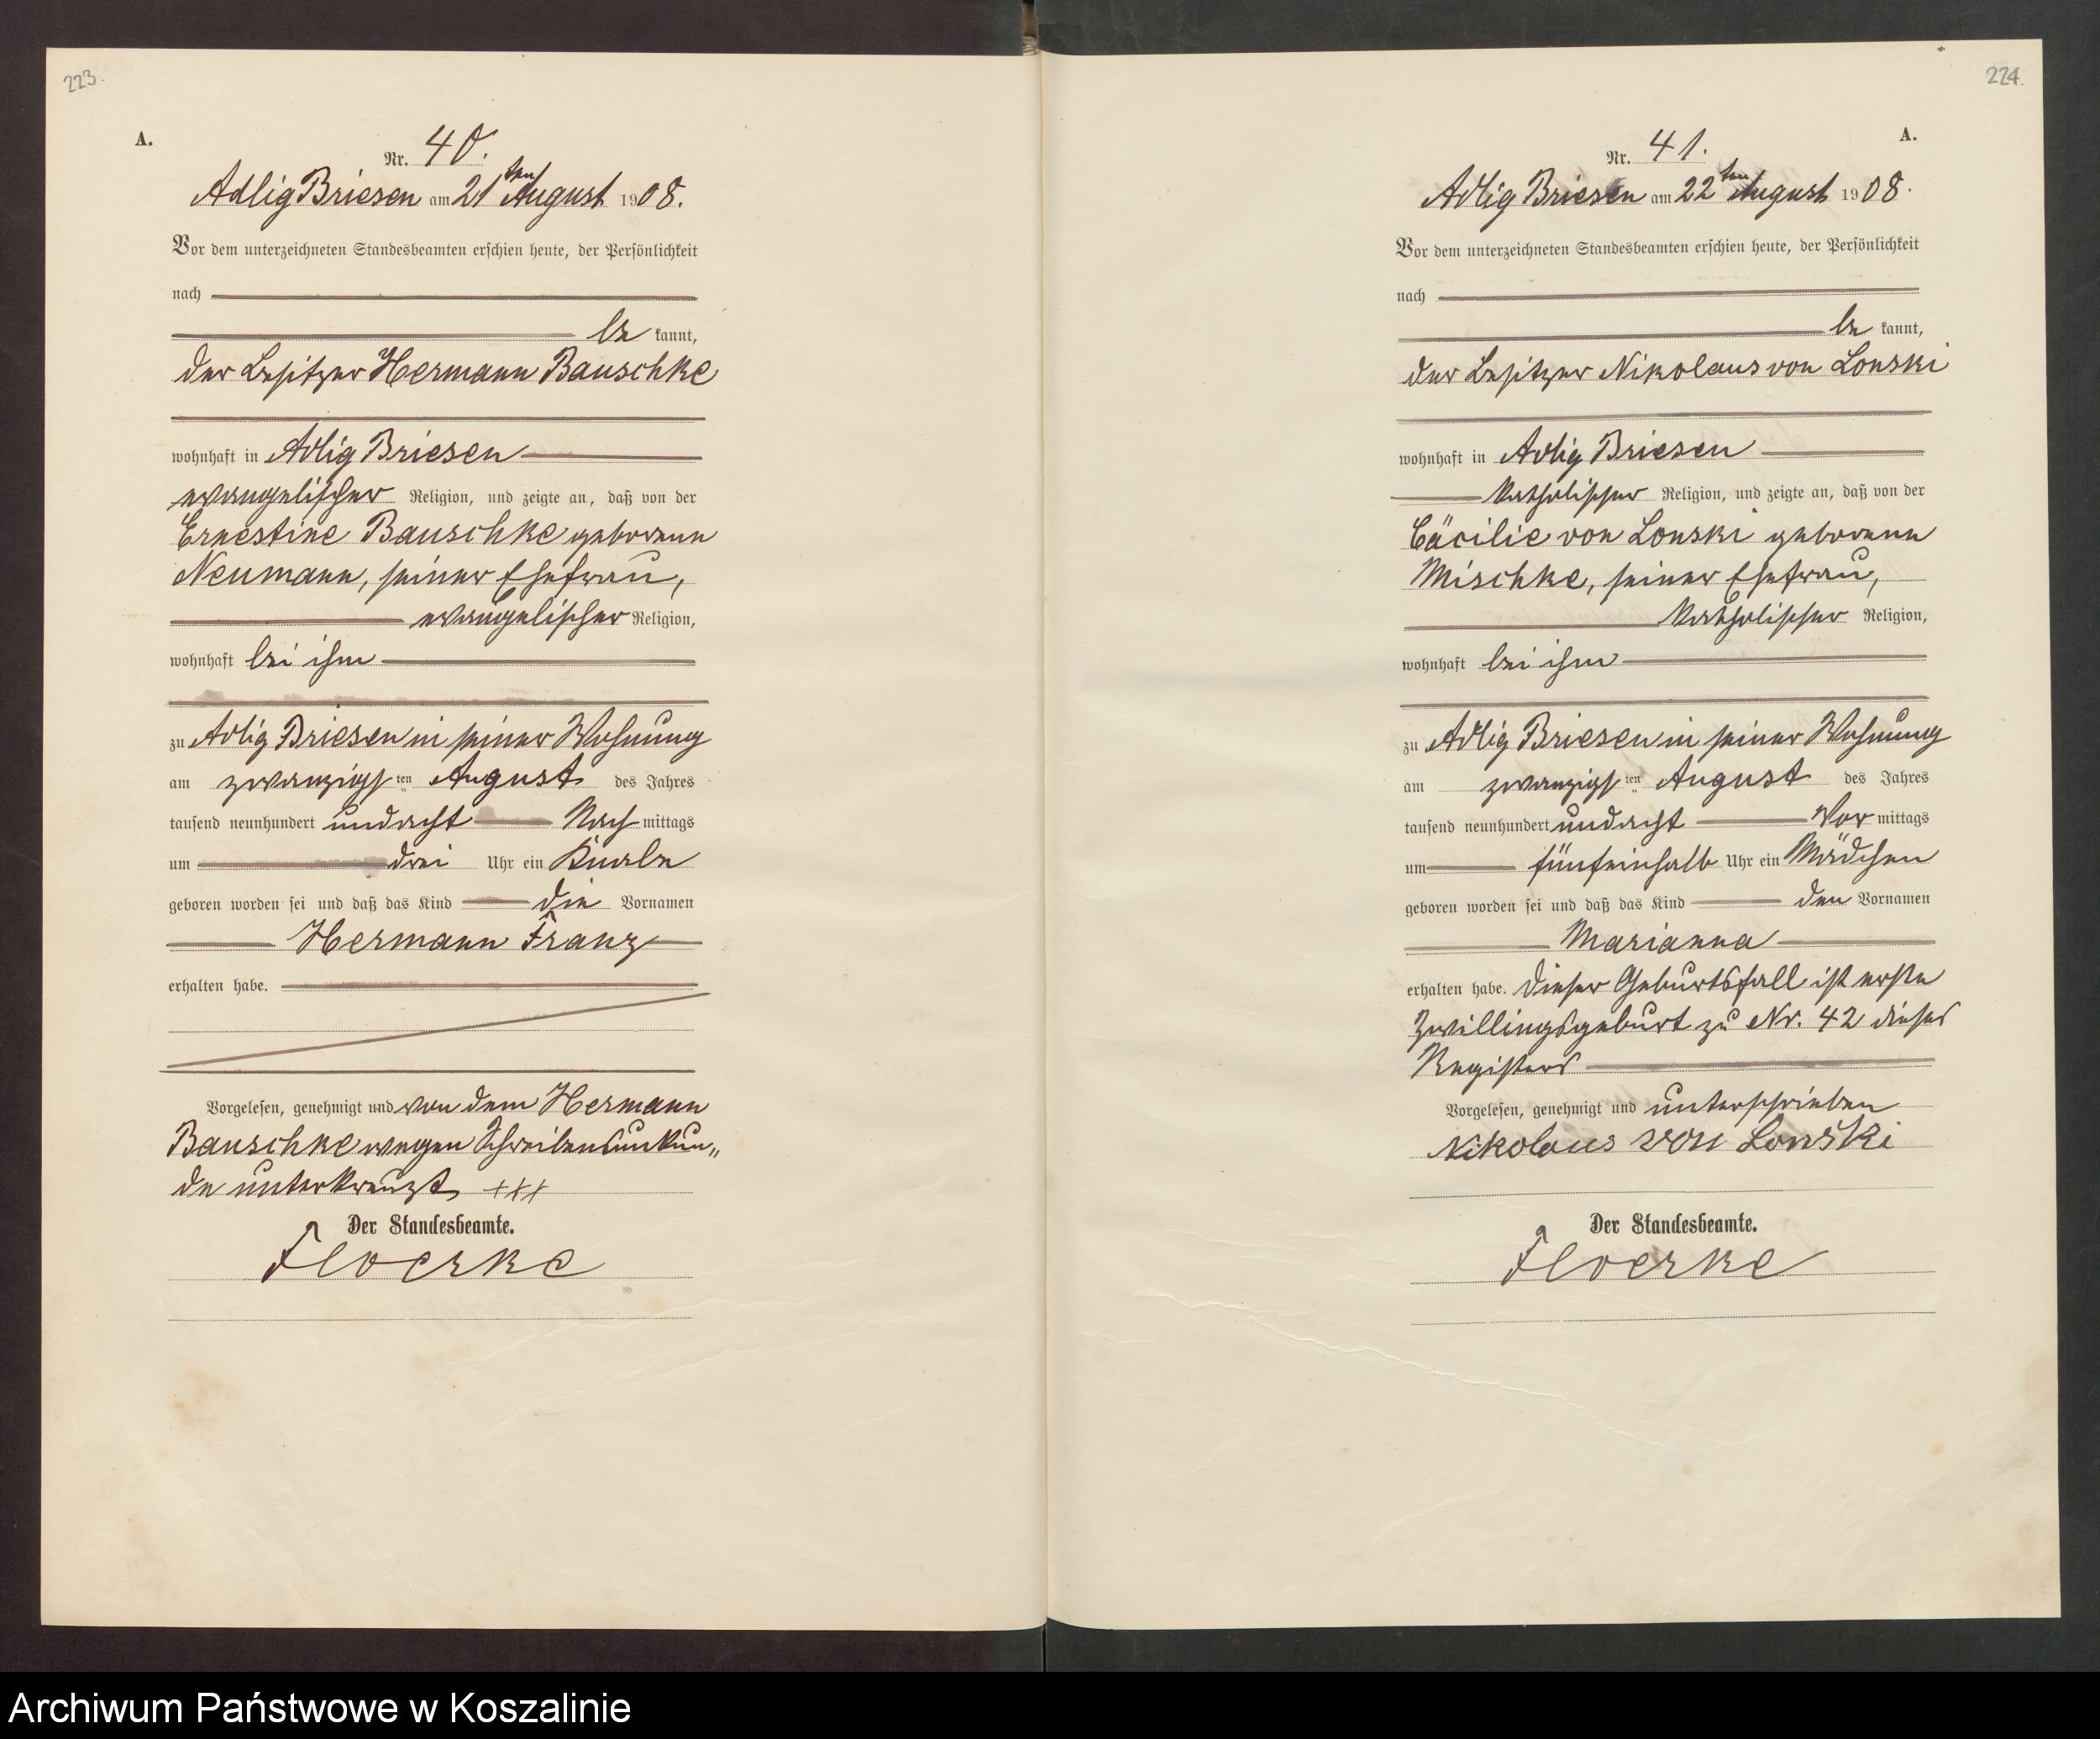 223.
A.
Nr. 40.
Adlig Briesen am 21ten August 1908.
Vor dem unterzeichneten Standesbeamten erschien heute, der Persönlichkeit
nach
be kannt,
der Besitzer Hermann Bauschke
wohnhaft in Adlig Briesen
evangelischer Religion, und zeigte an, daß von der
Ernestine Bauschke geborene
Neumann, seiner Ehefrau,
evangelischer Religion,
wohnhaft bei ihm
zu Adlig Briesen in seiner Wohnung
am zwanzigsten August des Jahres
tausend neunhundert undacht Nachmittags
um drei Uhr ein Knabe
geboren worden sei und daß das Kind die Vornamen
Hermann Franz
erhalten habe.
Vorgelesen, genehmigt und von dem Hermann
Bauschke wegen Schreibensunkun„
de unterkreuzt +++
Der Standesbeamte.
Floerke
224.
A.
Nr. 41.
Adlig Briesen am 22ten August 1908.
Vor dem unterzeichneten Standesbeamten erschien heute, der Persönlichkeit
nach
be kannt,
der Besitzer Nikolaus von Lonski
wohnhaft in Adlig Briesen
katholischer Religion, und zeigte an, daß von der
Cäcilie von Lonski geborene
Mischke, seiner Ehefrau,
katholischer Religion,
wohnhaft bei ihm
zu Adlig Briesen in seiner Wohnung
am zwanzigsten August des Jahres
tausend neunhundert undacht Vormittags
um fünfeinhalb Uhr ein Mädchen
geboren worden sei und daß das Kind den Vornamen
Marianna
erhalten habe. Dieser Geburtsfall ist erste
Zwillingsgeburt zu Nr. 42 dieses
Registers
Vorgelesen, genehmigt und unterschrieben
Nikolaus von Lonski
Der Standesbeamte.
Floerke
Archiwum Państwowe w Koszalinie